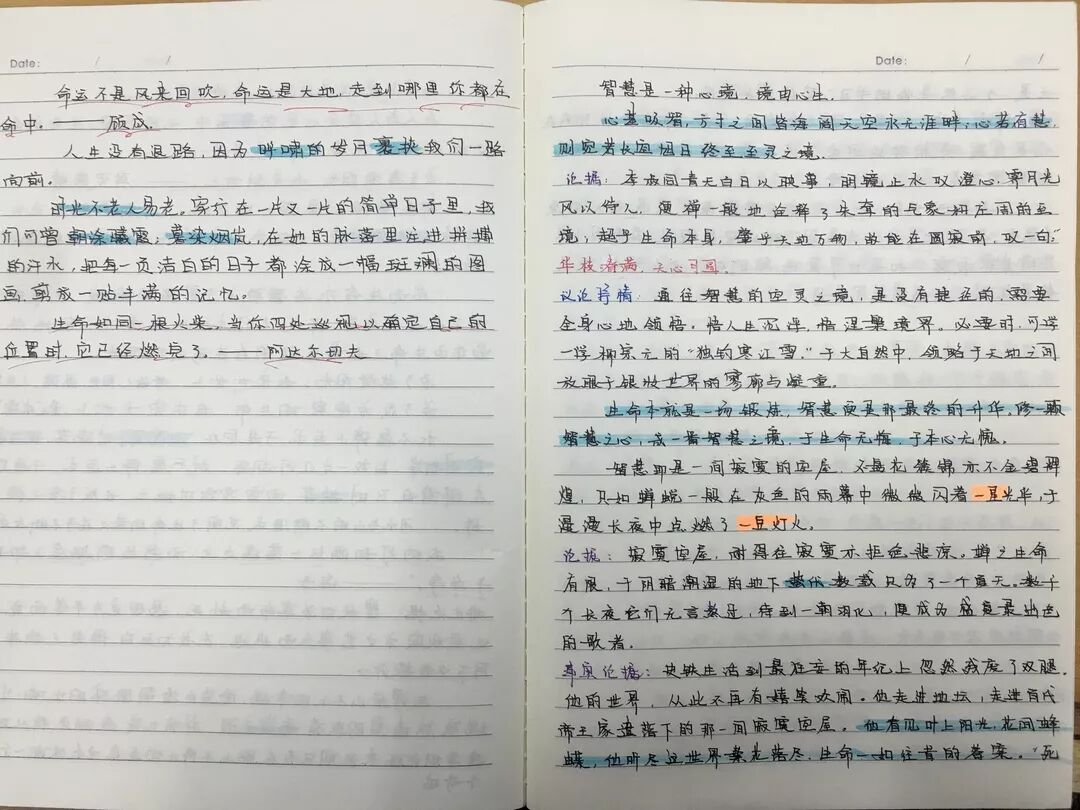 Date: / /
命运不是风来回吹,命运是大地,走到哪里你都在
命中。——顾城
人生没有退路,因为呼啸的岁月裹挟我们一路
向前。
时光不老人易老。穿行在一片又一片的简单日子里,我
们可曾朝涂曦霞,暮染烟岚,在她的脉落里注进拼搏
的汗水,把每一页洁白的日子都涂成一幅斑斓的图
画,剪成一贴丰满的记忆。
生命如同一根火柴,当你四处巡视以确定自己的
位置时,它已经燃完了。——阿达尔切夫
Date: / /
智慧是一种心境,境由心生。
心甚吸智,方寸之间皆海阔天空永无涯畔,心若有慧,
则空若长宙烟日终至至灵之境。
论据:李叔同青天白日以映事,明镜止水取澄心,霁月光
风以待人,便禅一般地诠释了朱耷的气象和庄周的至
境,起乎生命本身,肇乎天地万物,故能在圆寂前,叹一句,“
华枝春满,天心月圆。
议论抒情:通往智慧的空灵之境,是没有捷径的,需要
全身心地领悟,悟人生沉浮,悟涅槃境界。必要时,可学
一学柳宗元的“独钓寒江雪”于大自然中,领略于天地之间
放眼于银妆世界的寥廓与凝重。
生命本就是一场锻炼,智慧便是那最终的升华,修一颗
智慧之心,成一番智慧之境,于生命无悔,于本心无愧。
智慧即是一间寂寞的空屋,不是花簇锦亦不金碧辉
煌,只如蝉蜕一般在灰色的雨幕中微微闪着一豆光华,于
漫漫长夜中点燃了一豆灯火。
论据:寂寞空屋,耐得住寂寞亦拒绝悲凉。蝉之生命
有限,于阴暗潮湿的地下蛰伏数载只为了一个夏天。数千
个长夜它们无言熬过,待到一朝羽化,便成为盛夏最出色
的歌者。
事实论据:史铁生活到最狂妄的年纪上忽然残废了双腿,
他的世界,从此不再有嬉笑欢闹。他走进地坛,走进百代
帝王家遗落下的那一间寂寞空屋。他看见叶上阳光,花间蜂
蝶,他听尽这世界繁花落尽,生命一如往昔的着案。“死